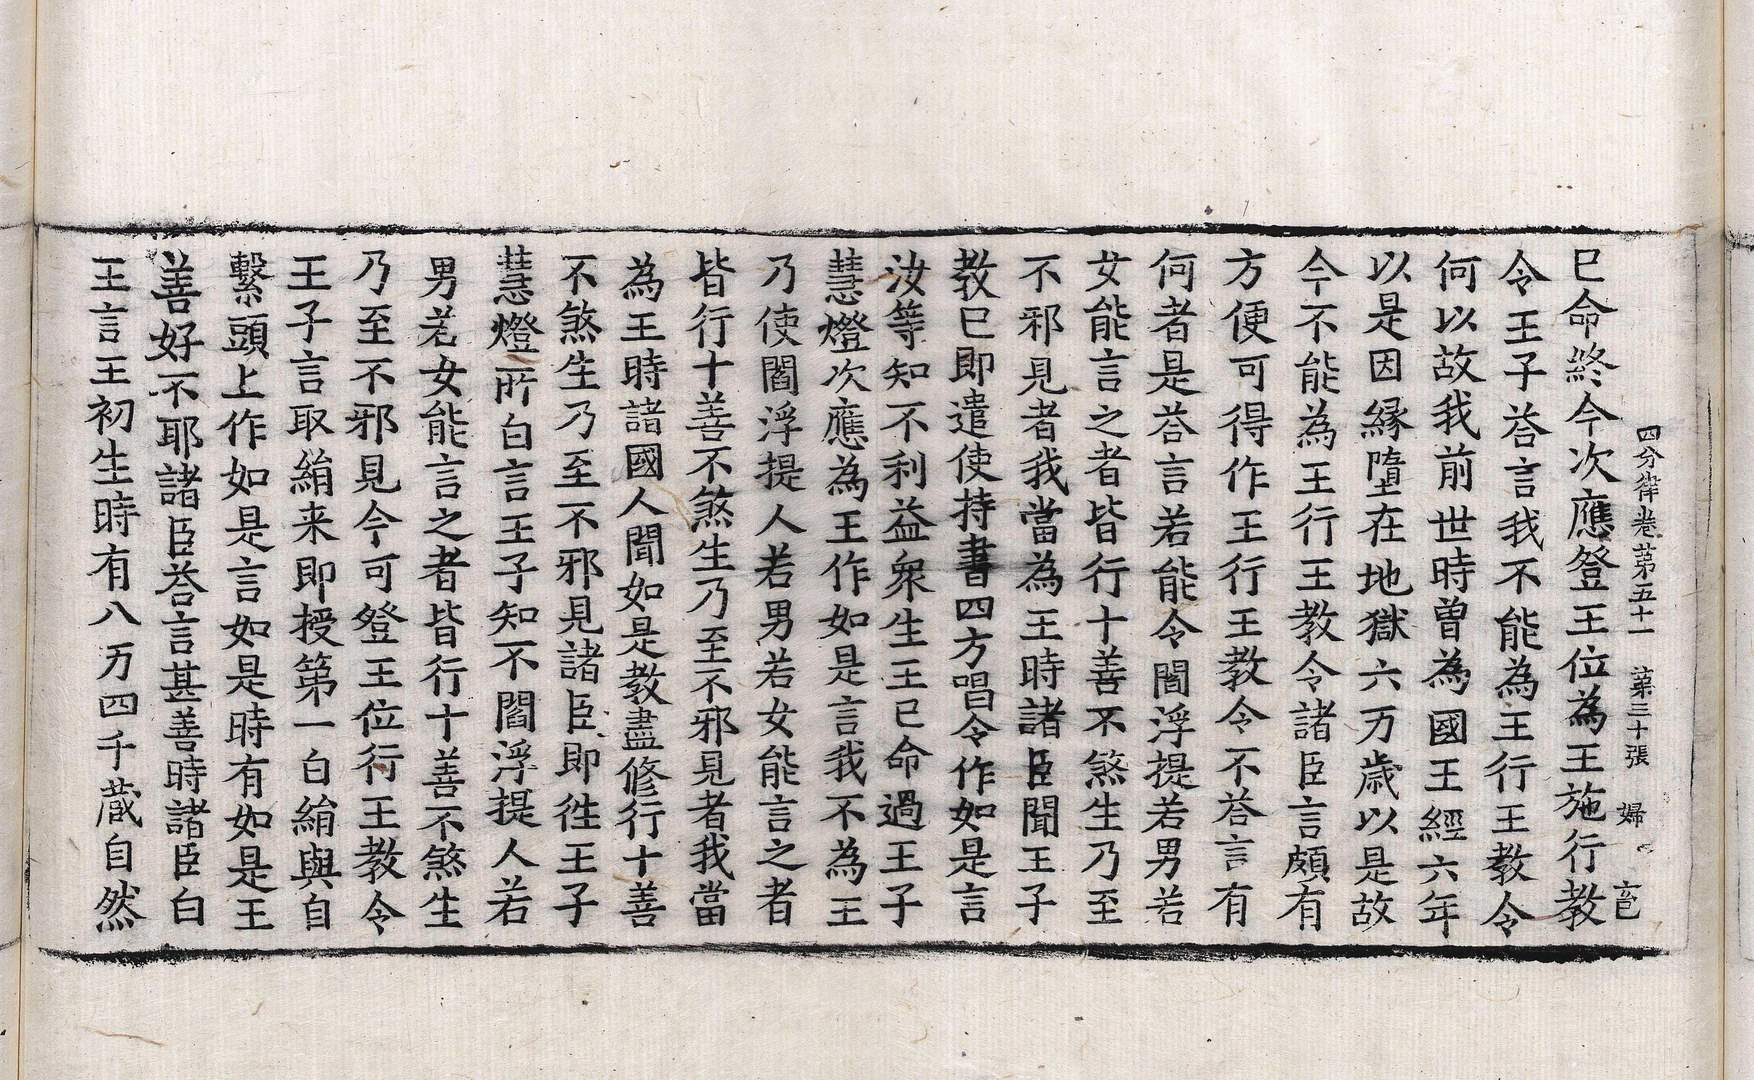 四分律卷第五十一 第三十張 婦
已命終今次應登王位為王施行教
令王子荅言我不能為王行王教令
何以故我前世時曾為國王經六年
以是因縁墮在地獄六万歲以是故
今不能為王行王教令諸臣言頗有
方便可得作王行王教令不荅言有
何者是荅言若能令閻浮提若男若
女能言之者皆行十善不煞生乃至
不邪見者我當為王時諸臣聞王子
教已即遣使持書四方唱令作如是言
汝等知不利益衆生王已命過王子
慧燈次應為王作如是言我不為王
乃使閻浮提人若男若女能言之者
皆行十善不煞生乃至不邪見者我當
為王時諸國人聞如是教盡修行十善
不煞生乃至不邪見諸臣即徃王子
慧燈所白言王子知不閻浮提人若
男若女能言之者皆行十善不煞生
乃至不邪見今可登王位行王教令
王子言取絹来即授第一白絹與自
繫頭上作如是言如是時有如是王
善好不耶諸臣荅言甚善時諸臣白
王言王初生時有八万四千歲自然